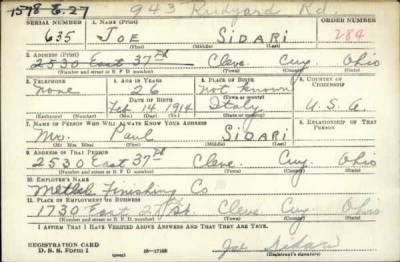 1578-8.27 943 Rudyard Rd.
SERIAL NUMBER 1. NAME (Print) ORDER NUMBER
635 JOE SIDARI 284
(First) (Middle) (Last)
2. ADDRESS (Print)
2530 East 37th Cleve. Cuy. Ohio
(Number and street or R. F. D. number) (Town) (County) (State)
3. TELEPHONE 4. AGE IN YEARS 5. PLACE OF BIRTH 6. COUNTRY OF CITIZENSHIP
none 26 Not known
DATE OF BIRTH (Town or county)
Feb 14 1914 Italy U. S. A.
(Exchange) (Number) (Mo.) (Day) (Yr.) (State or country)
7. NAME OF PERSON WHO WILL ALWAYS KNOW YOUR ADDRESS 8. RELATIONSHIP OF THAT PERSON
Mr. Paul SIDARI
(Mr., Mrs., Miss) (First) (Middle) (Last)
9. ADDRESS OF THAT PERSON
2530 East 37th Cleve. Cuy. Ohio
(Number and street or R. F. D. number) (Town) (County) (State)
10. EMPLOYER'S NAME
Finishing Co
11. PLACE OF EMPLOYMENT OR BUSINESS
1730 East St. Cleve Cuy. Ohio
(Number and street or R. F. D. number) (Town) (County) (State)
I AFFIRM THAT I HAVE VERIFIED ABOVE ANSWERS AND THAT THEY ARE TRUE.
REGISTRATION CARD
D. S. S. Form 1 16-17105 Joe Sidari
(Registrant's signature)